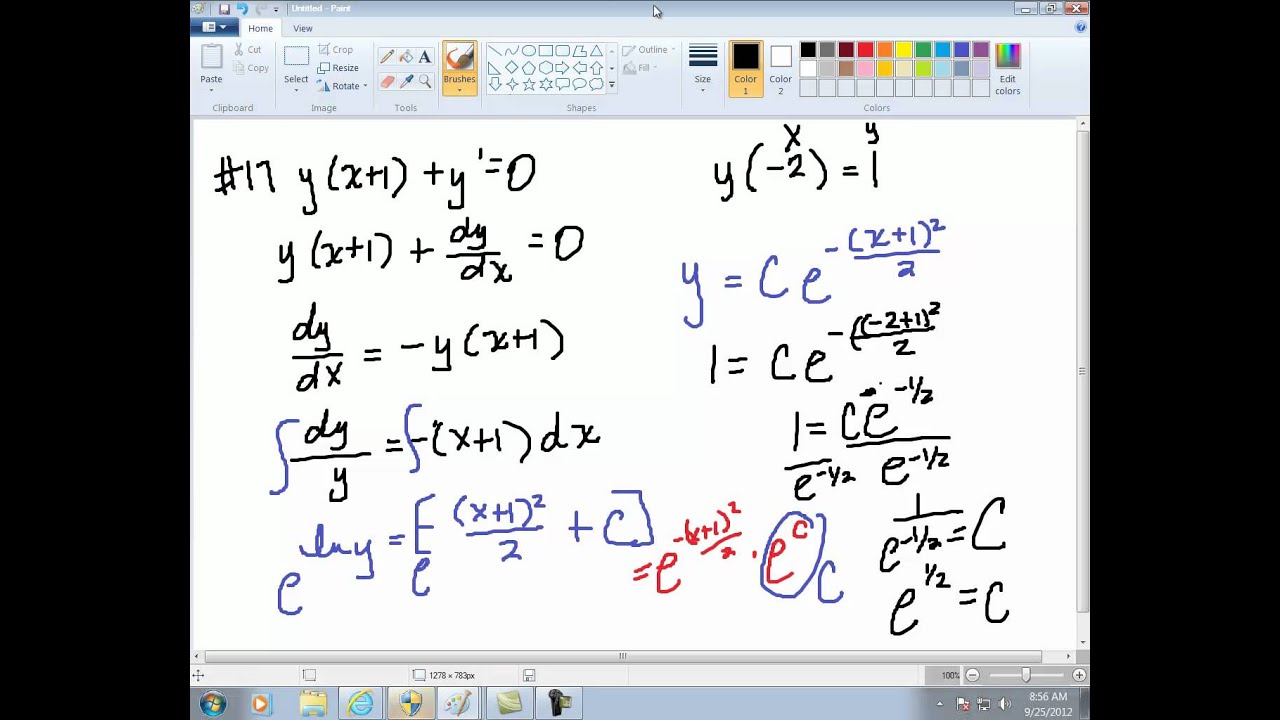 Untitled - Paint
Home View
Paste
Cut
Copy
Clipboard
Select
Crop
Resize
Rotate
Image
Tools
Brushes
Outline
Fill
Shapes
Size
Color 1
Color 2
Edit colors
Colors
#17 y(x+1) + y' = 0
y(x+1) + dy/dx = 0
dy/dx = -y(x+1)
∫ dy/y = ∫ -(x+1) dx
e^ln y = e^[- (x+1)²/2 + C]
= e^-(x+1)²/2 · e^C C
x y
y(-2) = 1
y = C e^-(x+1)²/2
1 = C e^-((-2+1)²/2
1 = C e^-1/2
e^-1/2 e^-1/2
1/e^-1/2 = C
e^1/2 = C
1278 × 783px
100%
8:56 AM
9/25/2012